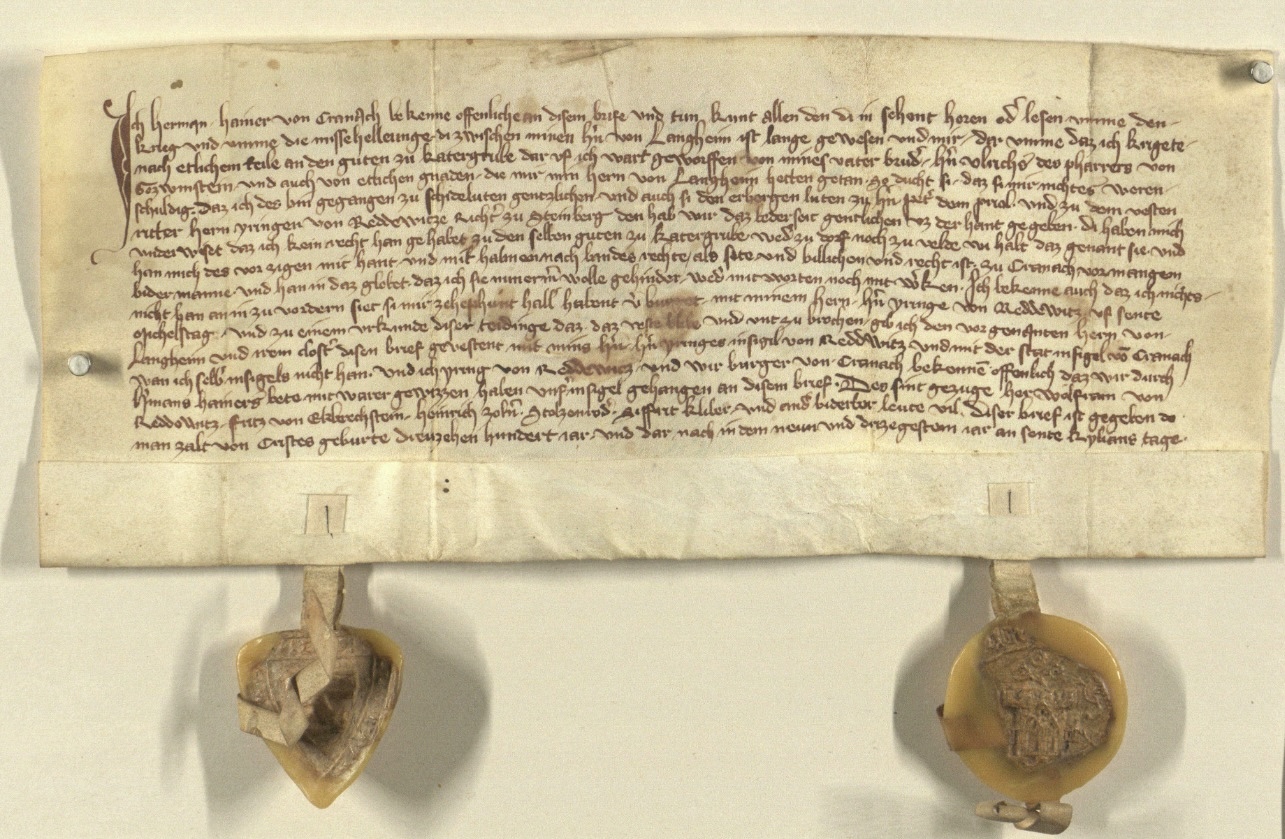 Ich herman hainer von Cranach bekenne offenliche an disem brife und tun kunt allen den di in sehent horen od̕ lesen umme den
krieg und umme die missehellunge di zwischen minen hn̄ von Langheim ist lange gewesen und mir dar umme daz ich krigete
nach etlichem teile an den guten zu katergrube dar uf ich wart geworffen von mines vater brud̕ hn̄ Ulrichs des pharrers von
und auch von etlichen gnaden die mir min hern von Langheim hetten getan So ducht si daz si mir nichtes weren
schuldig daz ich des bin gegangen zu schideluten gentzlichen und auch si den erbergen luten zu hn̄ dem prior und zu dem vesten
ritter hern yringen von Reddewitze Richt̕ zu Steinberg den hab wir daz bederseit gentlichen uz der hant gegeben di haben mich
underwiset daz ich kein recht han gehabet zu den selben guten zu katergrube wed̕ zu dorf noch zu velde wi halt daz genant sie und
han mich des vorzigen mit hant und mit halmen nach landes rechte als site und billichen und recht ist zu Cranach vor mangem
bider manne und han in daz globet daz ich sie nimerm̄ wolle gehindern wed̕ mit worten noch mit w̕ken Ich bekenne auch daz ich nichts
nicht han an in zu vordern sier si mir zehen phunt hall̕ habent mit minem hern hn̄ yringe von Reddewitz uf sente
Michelstag und zu einem urkunde diser teidinge daz daz veste blibe und unzubrochen gib ich den vorgenanten hern von
Langheim und irem clost̕ disen brief gevestent mit mins hn̄ hn̄ yringes insigil von Reddwitz und mit der stat insigel vō Cranach
wan ich selb̕ insigels nicht han Und ich yring von Reddewicz und wir burger von Cranach bekennē offenlich daz wir durch
h̕mans hainers bete mit warer gewizzen haben uns̕ insigel gehangen an disem brief Des sint gezuge her wolfram von
Reddewitz fritz von heinrich zoln̕ Stolzenrod̕ Siffrit kliber und and̕ biderber leute vil Diser brief ist gegeben do
man zalt von Cristes geburte dreuzehen hundert iar und dar nach in dem neun und drizegestem iar an sente kylians tage